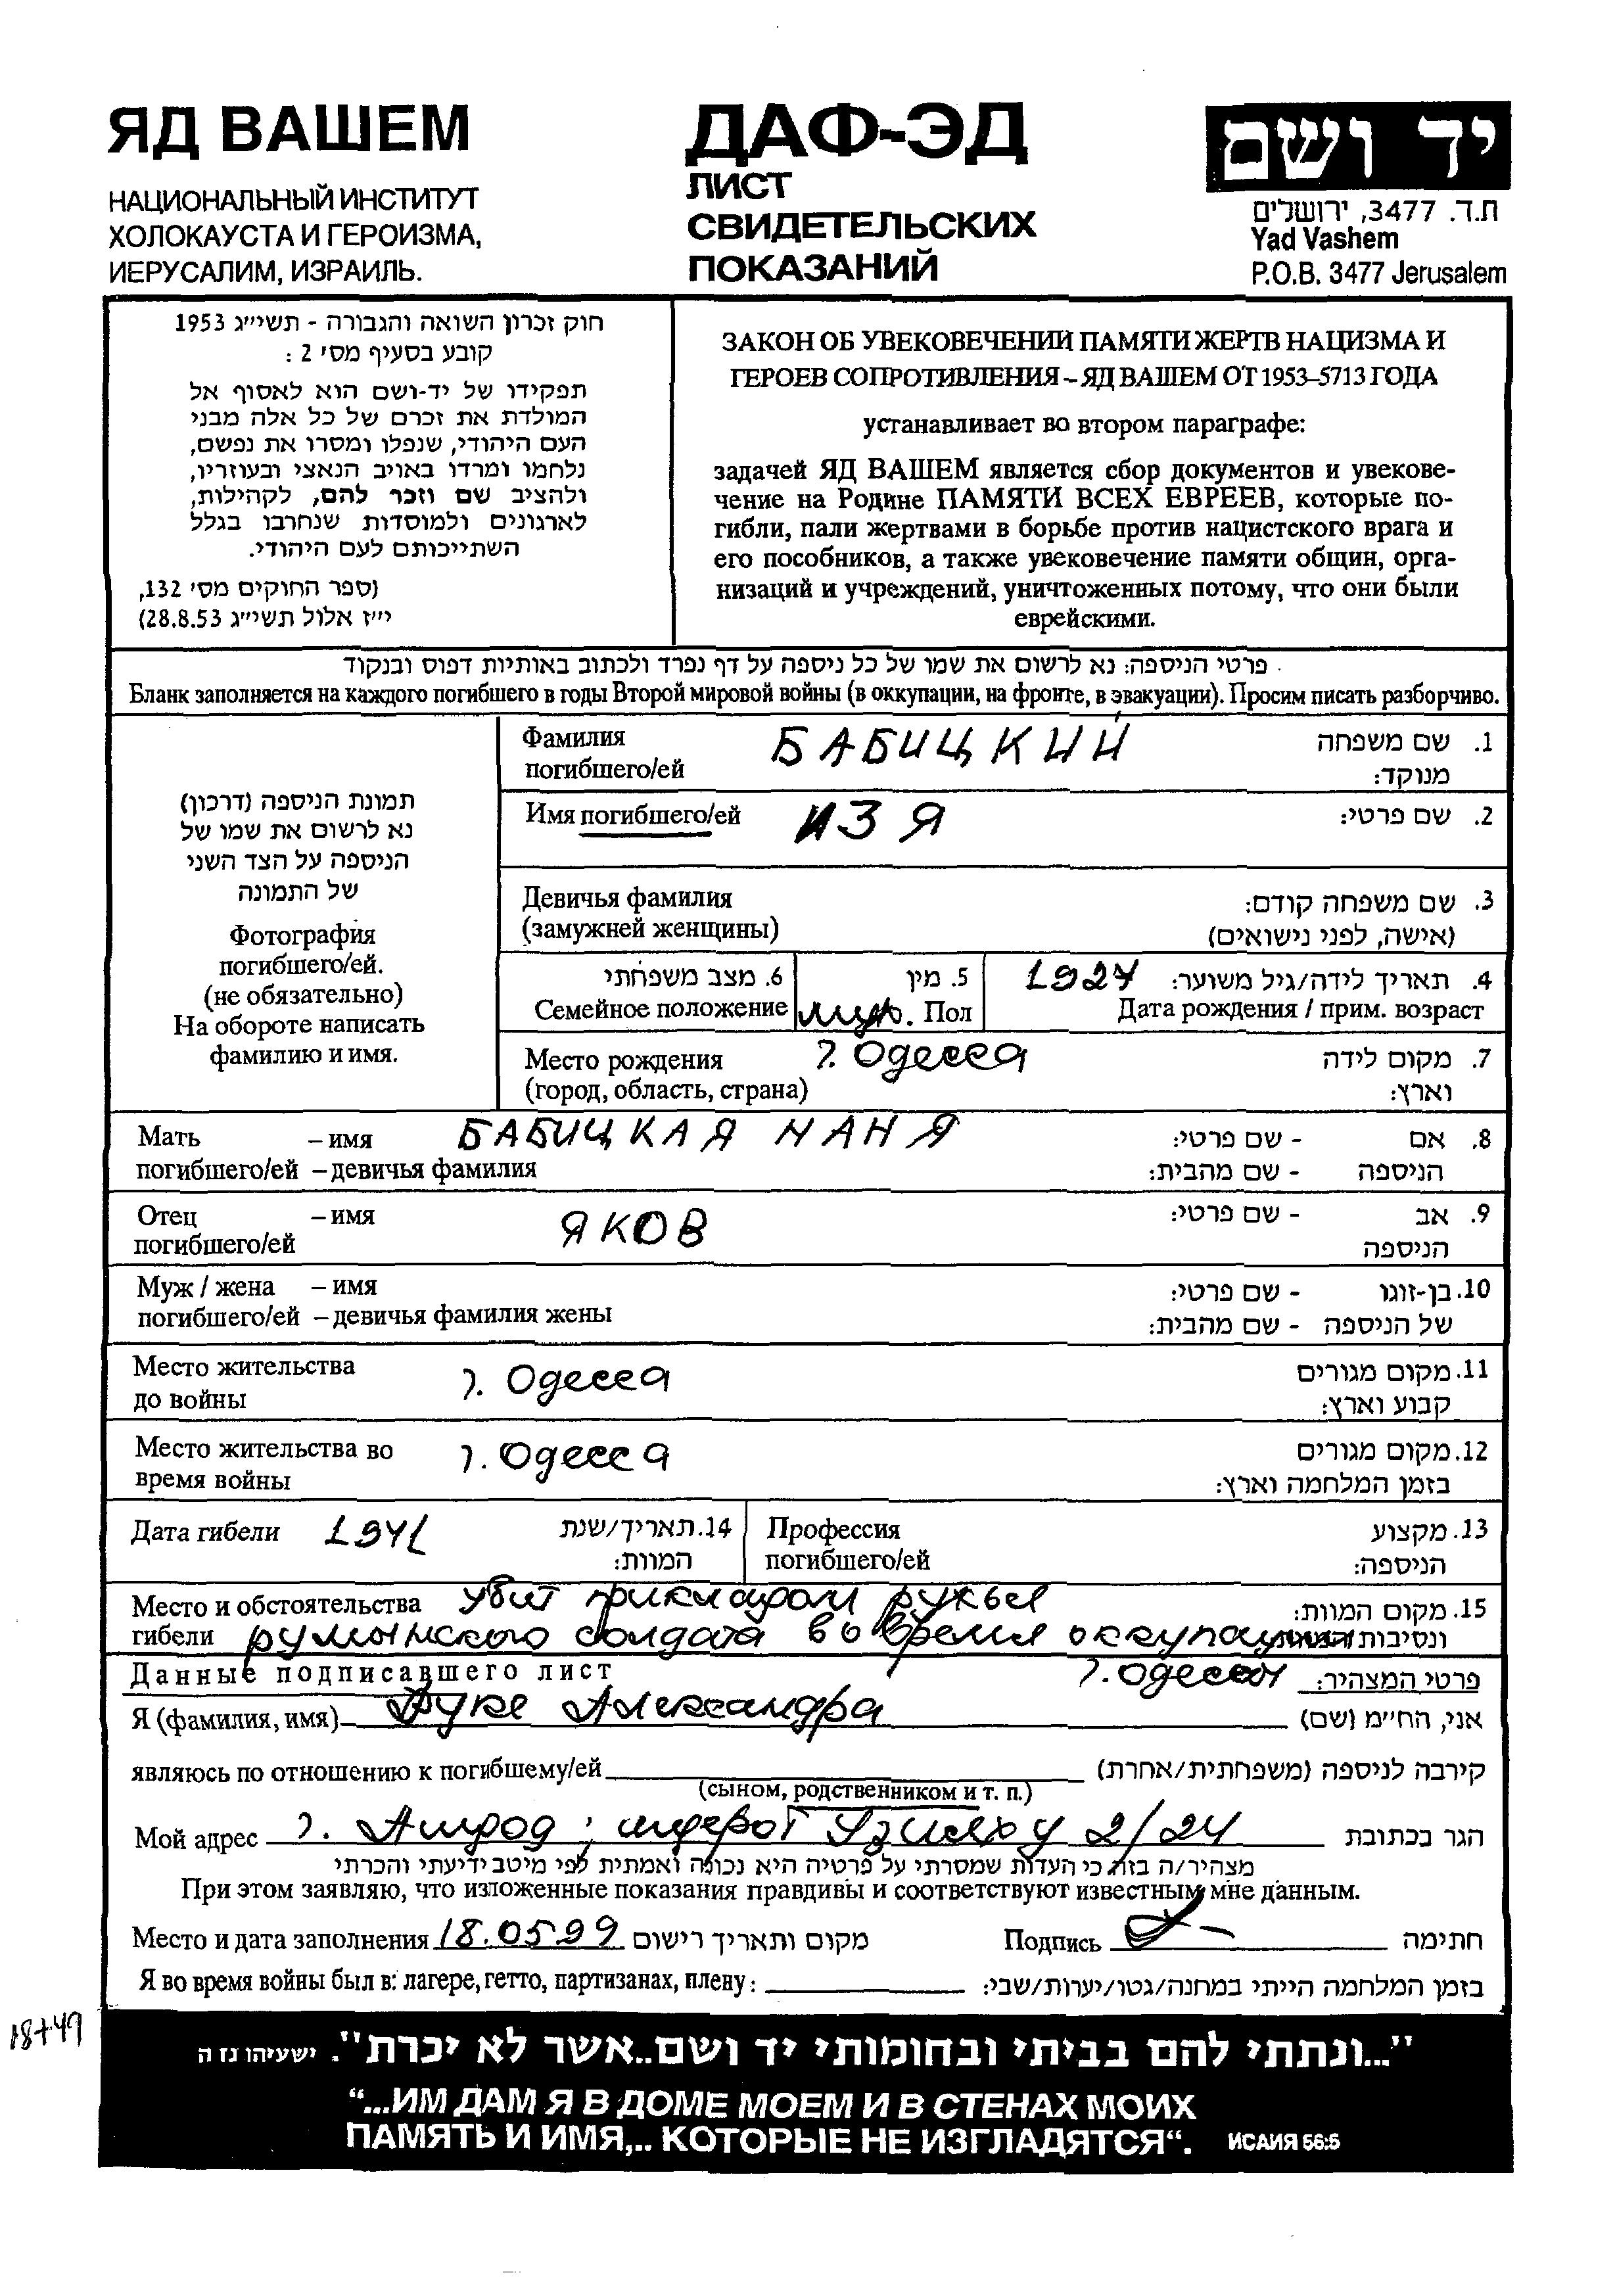 ЯД ВАШЕМ
НАЦИОНАЛЬНЫЙ ИНСТИТУТ
ХОЛОКАУСТА И ГЕРОИЗМА,
ИЕРУСАЛИМ, ИЗРАИЛЬ.
ДАФ-ЭД
ЛИСТ
СВИДЕТЕЛЬСКИХ
ПОКАЗАНИЙ
יד ושם
ת.ד. 3477, ירושלים
Yad Vashem
P.O.B. 3477 Jerusalem
חוק זכרון השואה והגבורה - תשי״ג 1953
קובע בסעיף מס׳ 2 :
תפקידו של יד-ושם הוא לאסוף אל
המולדת את זכרם של כל אלה מבני
העם היהודי, שנפלו ומסרו את נפשם,
נלחמו ומרדו באויב הנאצי ובעוזריו,
ולהציב שם וזכר להם, לקהילות,
לארגונים ולמוסדות שנחרבו בגלל
השתייכותם לעם היהודי.
(ספר החוקים מס׳ 132,
י״ז אלול תשי״ג 28.8.53)
ЗАКОН ОБ УВЕКОВЕЧЕНИИ ПАМЯТИ ЖЕРТВ НАЦИЗМА И
ГЕРОЕВ СОПРОТИВЛЕНИЯ – ЯД ВАШЕМ ОТ 1953–5713 ГОДА
устанавливает во втором параграфе:
задачей ЯД ВАШЕМ является сбор документов и увекове-
чение на Родине ПАМЯТИ ВСЕХ ЕВРЕЕВ, которые по-
гибли, пали жертвами в борьбе против нацистского врага и
его пособников, а также увековечение памяти общин, орга-
низаций и учреждений, уничтоженных потому, что они были
еврейскими.
פרטי הניספה: נא לרשום את שמו של כל ניספה על דף נפרד ולכתוב באותיות דפוס ובנקוד
Бланк заполняется на каждого погибшего в годы Второй мировой войны (в оккупации, на фронте, в эвакуации). Просим писать разборчиво.
תמונת הניספה (דרכון)
נא לרשום את שמו של
הניספה על הצד השני
של התמונה
Фотография
погибшего/ей.
(не обязательно)
На обороте написать
фамилию и имя.
Фамилия БАБИЦКИЙ 1. שם משפחה
погибшего/ей מנוקד:
Имя погибшего/ей ИЗЯ 2. שם פרטי:
Девичья фамилия 3. שם משפחה קודם:
(замужней женщины) (אישה, לפני נישואים)
6. מצב משפחתי 5. מין 1927 4. תאריך לידה/גיל משוער:
Семейное положение муж. Пол Дата рождения / прим. возраст
Место рождения г. Одесса 7. מקום לידה
(город, область, страна) וארץ:
Мать – имя БАБИЦКАЯ НАНЯ 8. אם - שם פרטי:
погибшего/ей – девичья фамилия הניספה - שם מהבית:
Отец – имя ЯКОВ 9. אב - שם פרטי:
погибшего/ей הניספה
Муж / жена – имя 10. בן-זוגו - שם פרטי:
погибшего/ей – девичья фамилия жены של הניספה - שם מהבית:
Место жительства г. Одесса 11. מקום מגורים
до войны קבוע וארץ:
Место жительства во г. Одесса 12. מקום מגורים
время войны בזמן המלחמה וארץ:
Дата гибели 1941 14. תאריך/שנת Профессия 13. מקצוע
המוות: погибшего/ей הניספה:
Место и обстоятельства убит прикладом ружья 15. מקום המוות:
гибели румынского солдата во время оккупации ונסיבות המוות:
Данные подписавшего лист г. Одессы פרטי המצהיר:
Я (фамилия, имя) Александра אני, הח״מ (שם)
являюсь по отношению к погибшему/ей קירבה לניספה (משפחתית/אחרת)
(сыном, родственником и т. п.)
Мой адрес г. Ашдод, 2/24 הגר בכתובת
מצהיר/ה בזה כי העדות שמסרתי על פרטיה היא נכונה ואמתית לפי מיטב ידיעתי והכרתי
При этом заявляю, что изложенные показания правдивы и соответствуют известным мне данным.
Место и дата заполнения 18.05.99 מקום ותאריך רישום Подпись חתימה
Я во время войны был в: лагере, гетто, партизанах, плену: בזמן המלחמה הייתי במחנה/גטו/יערות/שבי:
18749
"...ונתתי להם בביתי ובחומותי יד ושם..אשר לא יכרת". ישעיהו נז ה
“...ИМ ДАМ Я В ДОМЕ МОЕМ И В СТЕНАХ МОИХ
ПАМЯТЬ И ИМЯ,.. КОТОРЫЕ НЕ ИЗГЛАДЯТСЯ“. ИСАИЯ 56:5